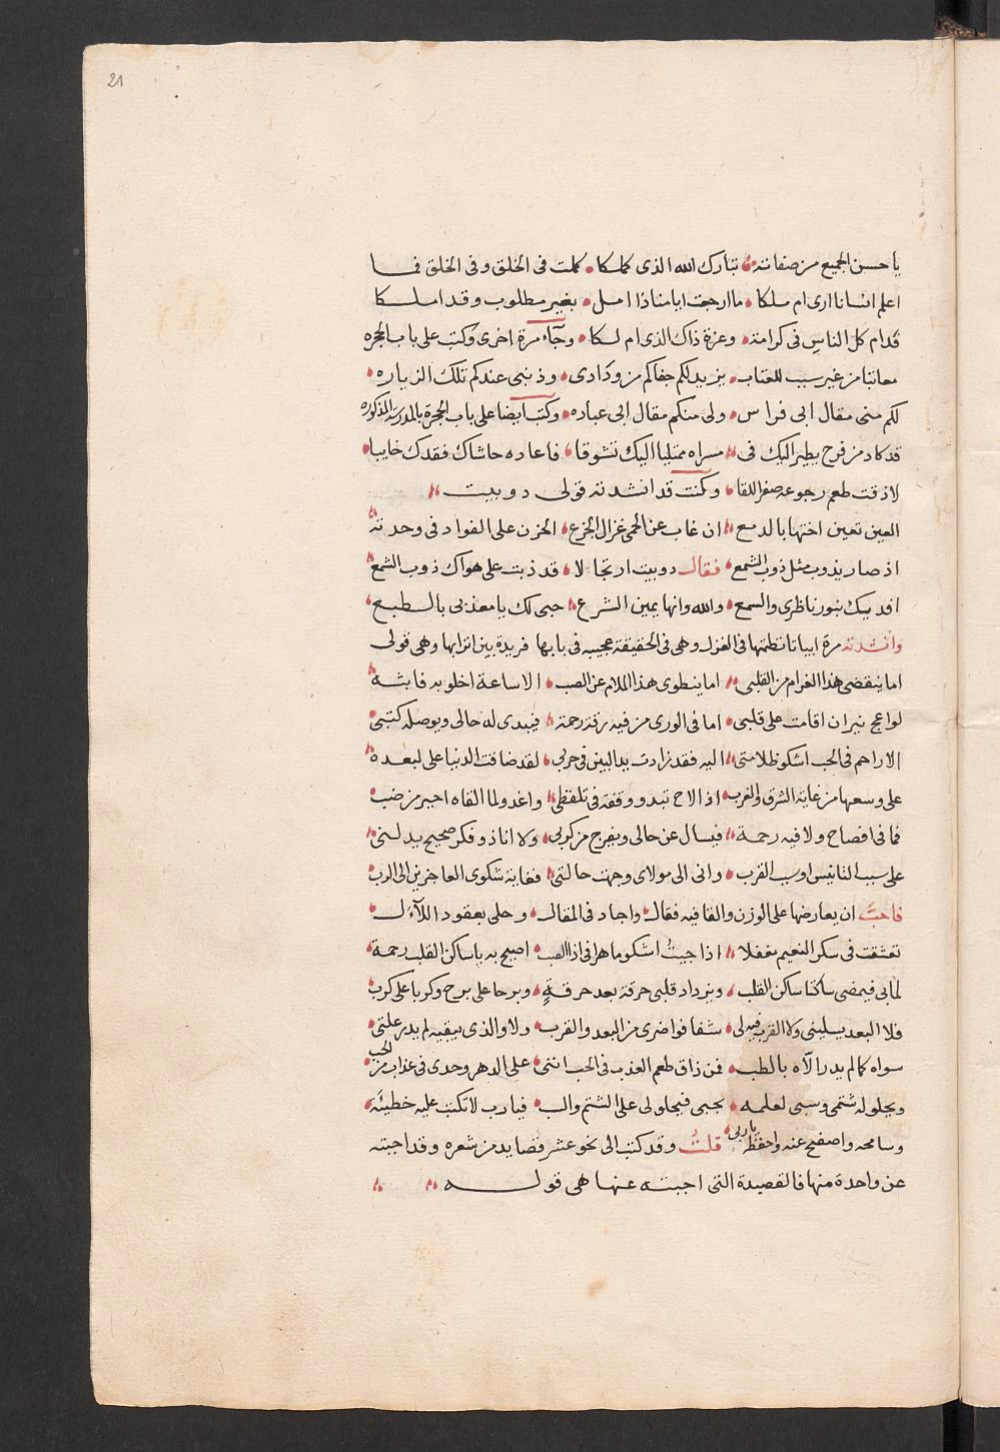 21
يا حسن الجميع من صفاته تبارك الله الذى كملكا كملت فى الخلق وفى الخلق فما
اعلم انسانا ارى ام ملكا ما ارجف ايامنا ذا امل بغير مطلوب وقد املكا
قدام كل الناس فى كرامة وعزة ذاك الذى ام لكا وجآء مرة اخرى وكتب على باب الحجره
معاتبا من غير سبب للعتاب يزيد لكم جفاكم من ودادى وذنبى عندكم تلك الزياره
لكم منى مقال ابى فراس ولى منكم مقال ابى عباده وكتب ايضا على باب الحجرة بالمدرسة المذكوره
قد كاد من فرح يطير اليك فى مسراه ممتليا اليك تشوقا فاعاده حاشاك فقدك خايبا
لاذقت طعم رجوعه صفر اللقا وكنت قد انشدته قولى دوبيت
العين تعين اختها بالدمع ان غاب عن الحمى غزال الجزع الحزن على الفواد فى وحدته
اذ صار يذوب مثل ذوب الشمع فقال دوبيت ارتجالا قد ذبت على هواك ذوب الشمع
افديك بنور ناظرى والسمع والله وانها يمين الشرع حبى لك يا معذبى بالطبع
وانشدته مرة ابياتا نظمتها فى الغزل وهى فى الحقيقة عجيبه فى بابها فريدة بين اترابها وهى قولى
اما ينقضى هذا الغرام من القلب اما ينطوى هذا الملام عن الصب الا ساعة اخلو به فابثه
لواعج نيران اقامت على قلبى اما فى الورى من فيه رقة رحمة فيبدى له حالى ويوصله كتبى
الا راحم فى الحب اشكو ظلامتى اليه فقد زادت يد البين فى حربى لقد ضاقت الدنيا على لبعده
على وسعها من غاية الشرق والغرب اذا لاح تبدو وقفة فى تلفظى واغدو لما القاه احير من ضب
فما فى افصاح ولا فيه رحمة فيسال عن حالى ويفرج من كربى ولا انا ذو فكر صحيح يدلنى
على سبب التانيس او سبب القرب وانى الى مولاى وجهت حالتى فغاية شكوى العاجزين الى الرب
فاحبَّ ان يعارضها على الوزن والقافيه فقال واجاد فى المقال وحلى بعقود اللآءل
تعشقت فى سكر النعيم مغفلا اذا جيتُ اشكو ما هرا فى اذا الصب اصيح به يا ساكن القلب رحمة
لما بى فيمضى ساكتا ساكن القلب ويزداد قلبى حرقة بعد حرقةٍ وبرحا على برح وكربا على كرب
فلا البعد يسلينى ولا القرب فيه لى شفا فواضرى من البعد والقرب ولا والذى يبقيه لم يدر علتى
سواه كما لم يدر الآه بالطب فمن ذاق طعم العذب فى الحب اننى على الدهر وحدى فى عذاب من الحب
ويحلو له شتمى وسبى لعلمه بحبى فيحاولى على الشتم والسب فيارب لا تكتب عليه خطيئة
وسامحه واصفح عنه واحفظه يا ربى قلتُ وقد كتب الى نحو عشر قصايد من شعره وقد اجبته
عن واحدة منها فالقصيدة التى اجبته عنها هى قوله